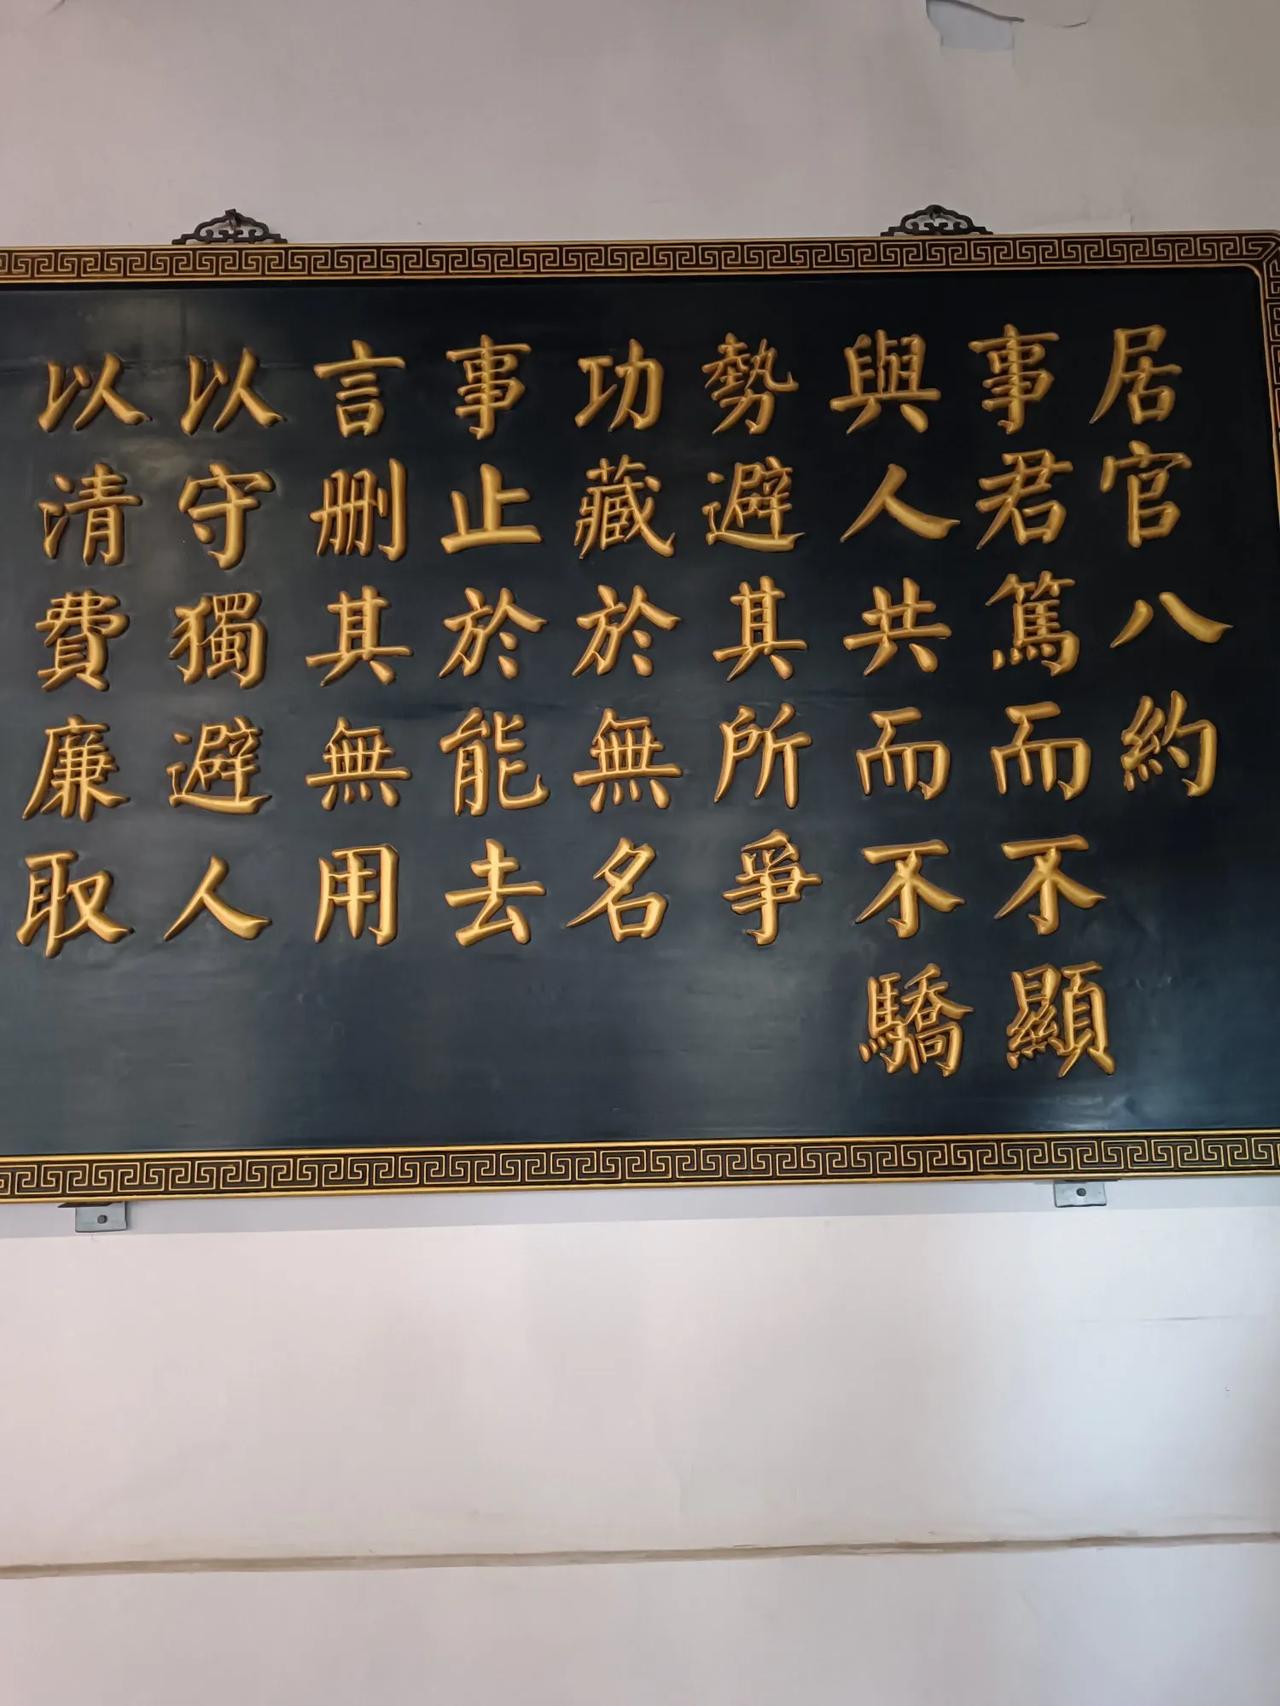 居官八約
事君篤而不顯
與人共而不驕
勢避其所爭
功藏於無名
事止於能去
言刪其無用
以守獨避人
以清費廉取